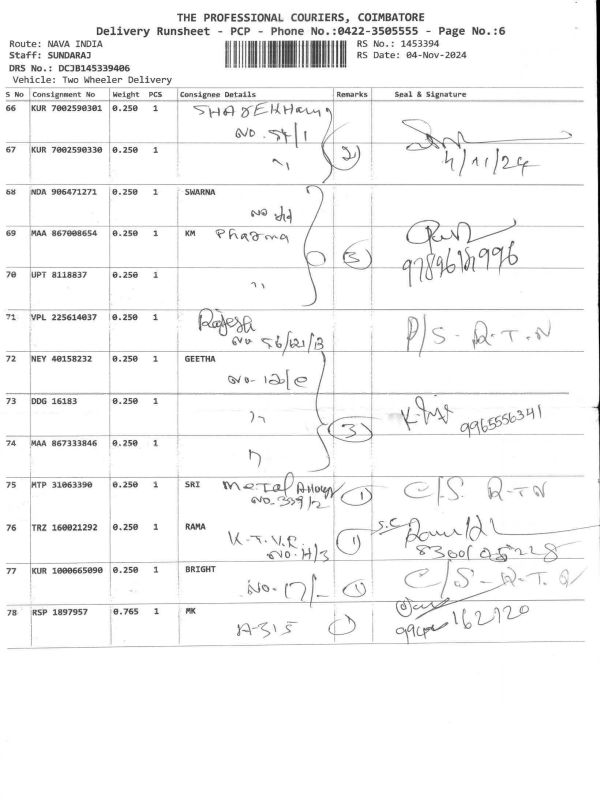 THE PROFESSIONAL COURIERS, COIMBATORE
Delivery Runsheet - PCP - Phone No.:0422-3505555 - Page No.:6
Route: NAVA INDIA
RS No.: 1453394
Staff: SUNDARAJ
RS Date: 04-Nov-2024
DRS No.: DCJB145339406
Vehicle: Two Wheeler Delivery
S No Consignment No Weight PCS Consignee Details Remarks Seal & Signature
66 KUR 7002590301 0.250 1
NO.
67 KUR 7002590330 0.250 1 " 2
4/11/24
68 NDA 906471271 0.250 1 SWARNA
NO
69 MAA 867008654 0.250 1 KM Pharma 3
70 UPT 8118837 0.250 1 "
71 VPL 225614037 0.250 1 Rajesh P/S - R-T-N
NO.
72 NEY 40158232 0.250 1 GEETHA
NO-
73 DDG 16183 0.250 1 " 3 9965556341
74 MAA 867333846 0.250 1 "
75 MTP 31063390 0.250 1 SRI Metal 1 C/S. R-T-N
NO. 359/2
76 TRZ 160021292 0.250 1 RAMA K.T.V.R. 1 S.C
NO. H/3
77 KUR 1000665090 0.250 1 BRIGHT C/S - R-T
NO- 17/- 1
78 RSP 1897957 0.765 1 MK
A-315 1